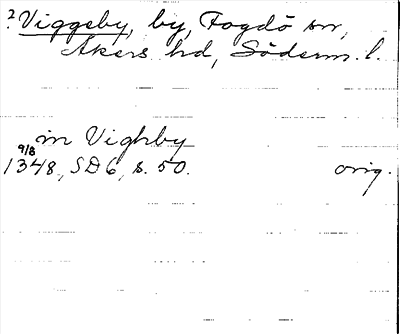 ? Viggeby, by, Fogdö sn,
Åkers hd, Söderm. l.
in Vighby
9/8
1348, SD 6, s. 50. orig.